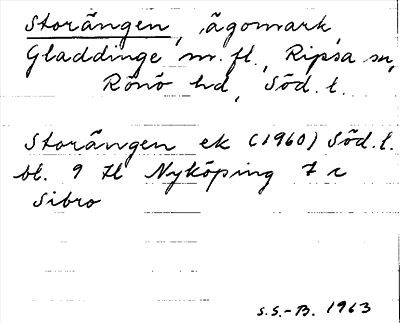 Storängen, ägomark,
Gladdinge m. fl., Ripsa sn,
Rönö hd, Söd. l.
Storängen ek (1960) Söd. l.
bl. 9 H Nyköping 7 c
Sibro
S.S.-B. 1963